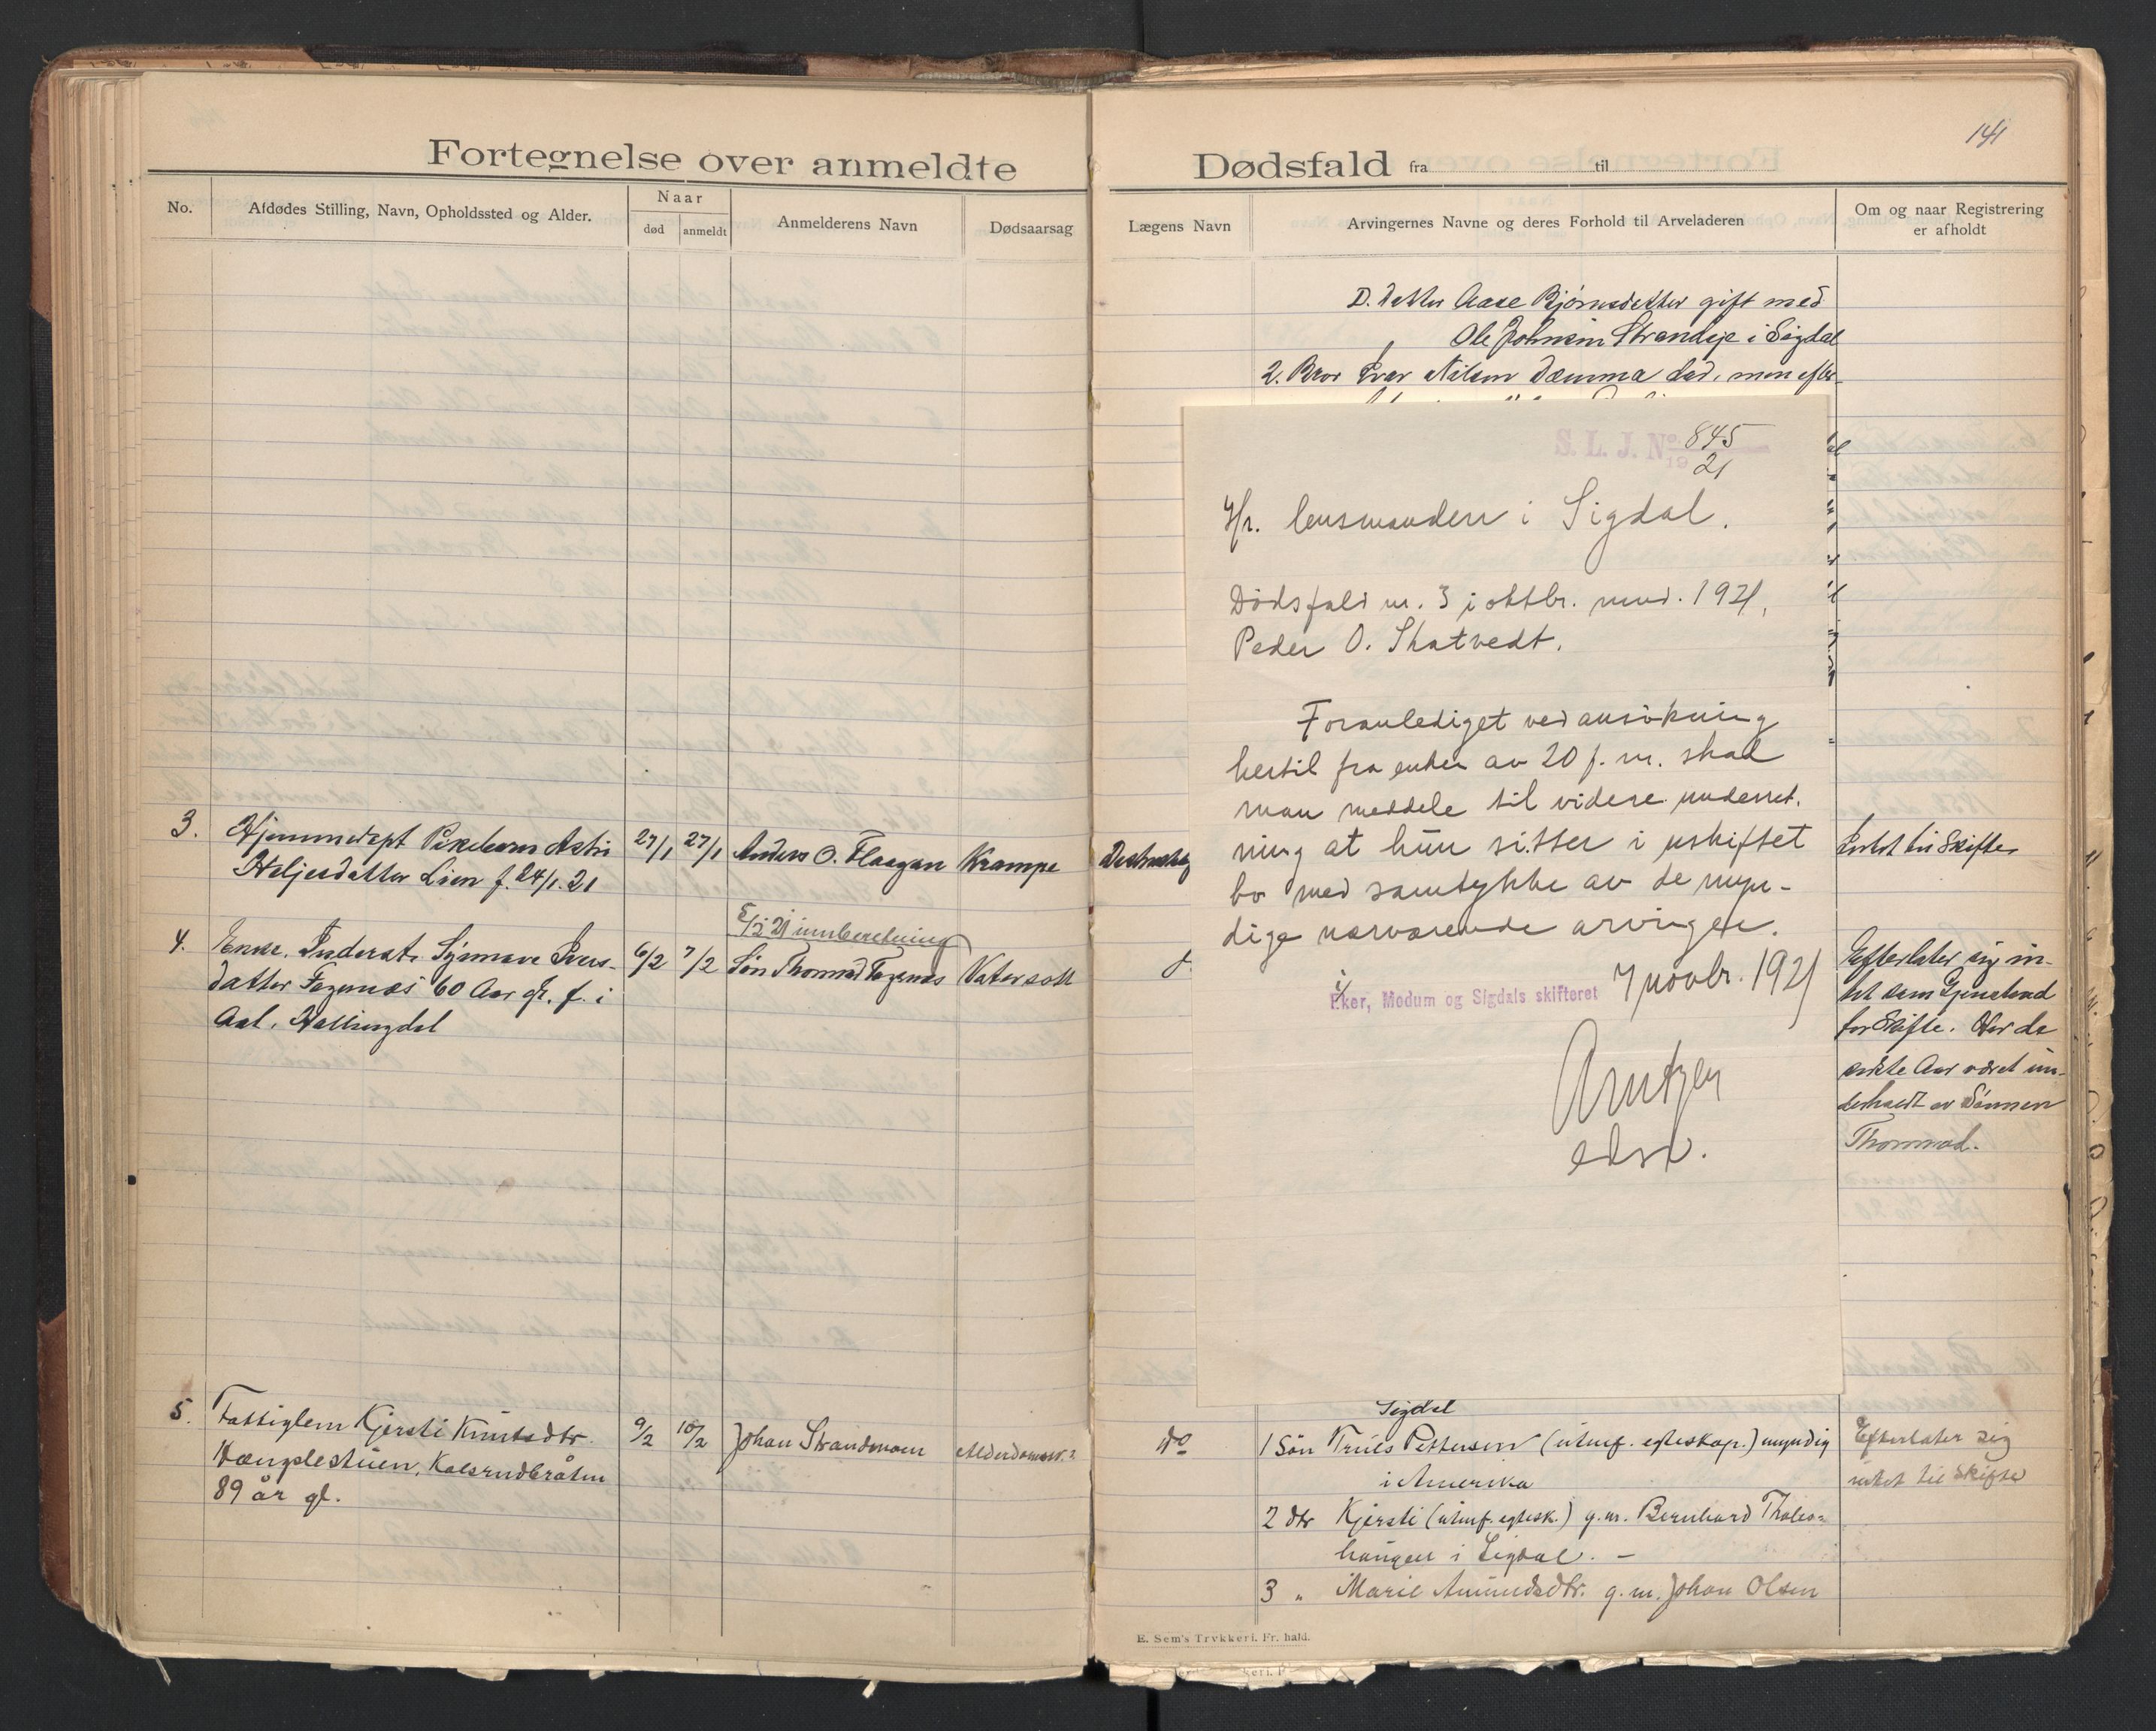 Fortegnelse over anmeldte
No.
Afdødes Stilling, Navn, Opholdssted og Alder.
Naar
død
anmeldt
Anmelderens Navn
Dødsaarsag
3. Hjemmedøpt Pikebarn Astri 27/1 27/1 Anders O. Flaagan Krampe
Heljesdatter Lien f. 24/1.21
5/2 21 innberetning
4. Enke, Inderst. Synnøve Ivers- 6/2 7/2 Søn Thomas Fagernæs Vatersott
datter Fagernæs 60 Aar gl. f. i
Aal, Hallingdal
5. Fattiglem Kjersti Knutsdtr. 9/2 10/2 Johan Strandmoen Alderdomssv.
89 år gl.
141
Dødsfald fra til
Lægens Navn
Arvingernes Navne og deres Forhold til Arveladeren
Om og naar Registrering
er afholdt
D. datter Aase Bjørnsdetter gift med
Ole Johnsen Strandeje i Sigdal
2. Bror Ivar Nilsen Dæmma død, men efter-
S. L. J. No 845
19 21
Hr. lensmanden i Sigdal.
Dödsfald nr. 3 i oktbr. mnd. 1921,
Peder O. Skatvedt.
Foranlediget ved ansökning
hertil fra enken av 20 f. m. skal
man meddele til videre underret.
ning at hun sitter i uskiftet
bo med samtykke av de myn-
dige nærværende arvinger.
Eker, Modum og Sigdals skifteret 7 novbr. 1921
Arntzen
edsv.
Intet til Skifte
Efterlater sig in-
tet som Gjenstand
for Skifte. Har de
sidste Aar været un-
derholdt av Sønnen
Thomas.
Sigdal
Do 1 Sön Truls Pettersen (utenf. egteskap.) myndig
i Amerika
2 dtr Kjersti (utenf. egtesk.) g.m. Bernhard
haugen i Sigdal. -
3 " Marie Amundsdtr. g. m. Johan Olsen
Efterlater sig
intet til Skifte
E. Sem's Trykkeri. Fr.hald.